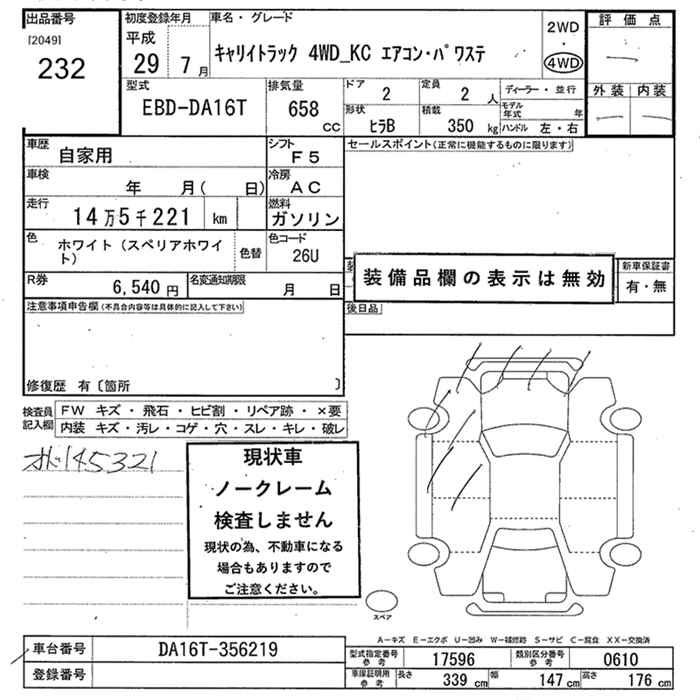 出品番号
[2049]
232
初度登録年月
平成
29 7月
車名・グレード
キャリイトラック 4WD_KC エアコン・パワステ
2WD
・
4WD
評価点
外装 内装
型式
EBD-DA16T
排気量
658
CC
ドア
2
定員
2 人
形状
ヒラB
積載
350 kg
ディーラー・並行
モデル
年式 年
ハンドル 左・右
車歴
自家用
シフト
F5
セールスポイント(正常に機能するものに限ります)
車検
年 月( 日)
冷房
AC
走行
14万5千221 km
燃料
ガソリン
色
ホワイト(スペリアホワイト)
色替
色コード
26U
装備品欄の表示は無効
新車保証書
有・無
R券
6,540円
名変通知期限
月 日
後日品
注意事項申告欄(不具合内容等は具体的に記入して下さい)
修復歴 有〔箇所 〕
検査員
記入欄
FW キズ・飛石・ヒビ割・リペア跡・×要
内装 キズ・汚レ・コゲ・穴・スレ・キレ・破レ
145321
現状車
ノークレーム
検査しません
現状の為、不動車になる
場合もありますので
ご注意ください。
スペア
A-キズ E-エクボ U-凹み W-補修跡 S-サビ C-腐食 XX-交換済
車台番号
DA16T-356219
型式指定番号
参考
17596
類別区分番号
参考
0610
登録番号
車庫証明用
参考
長さ
339 cm
幅
147 cm
高さ
176 cm